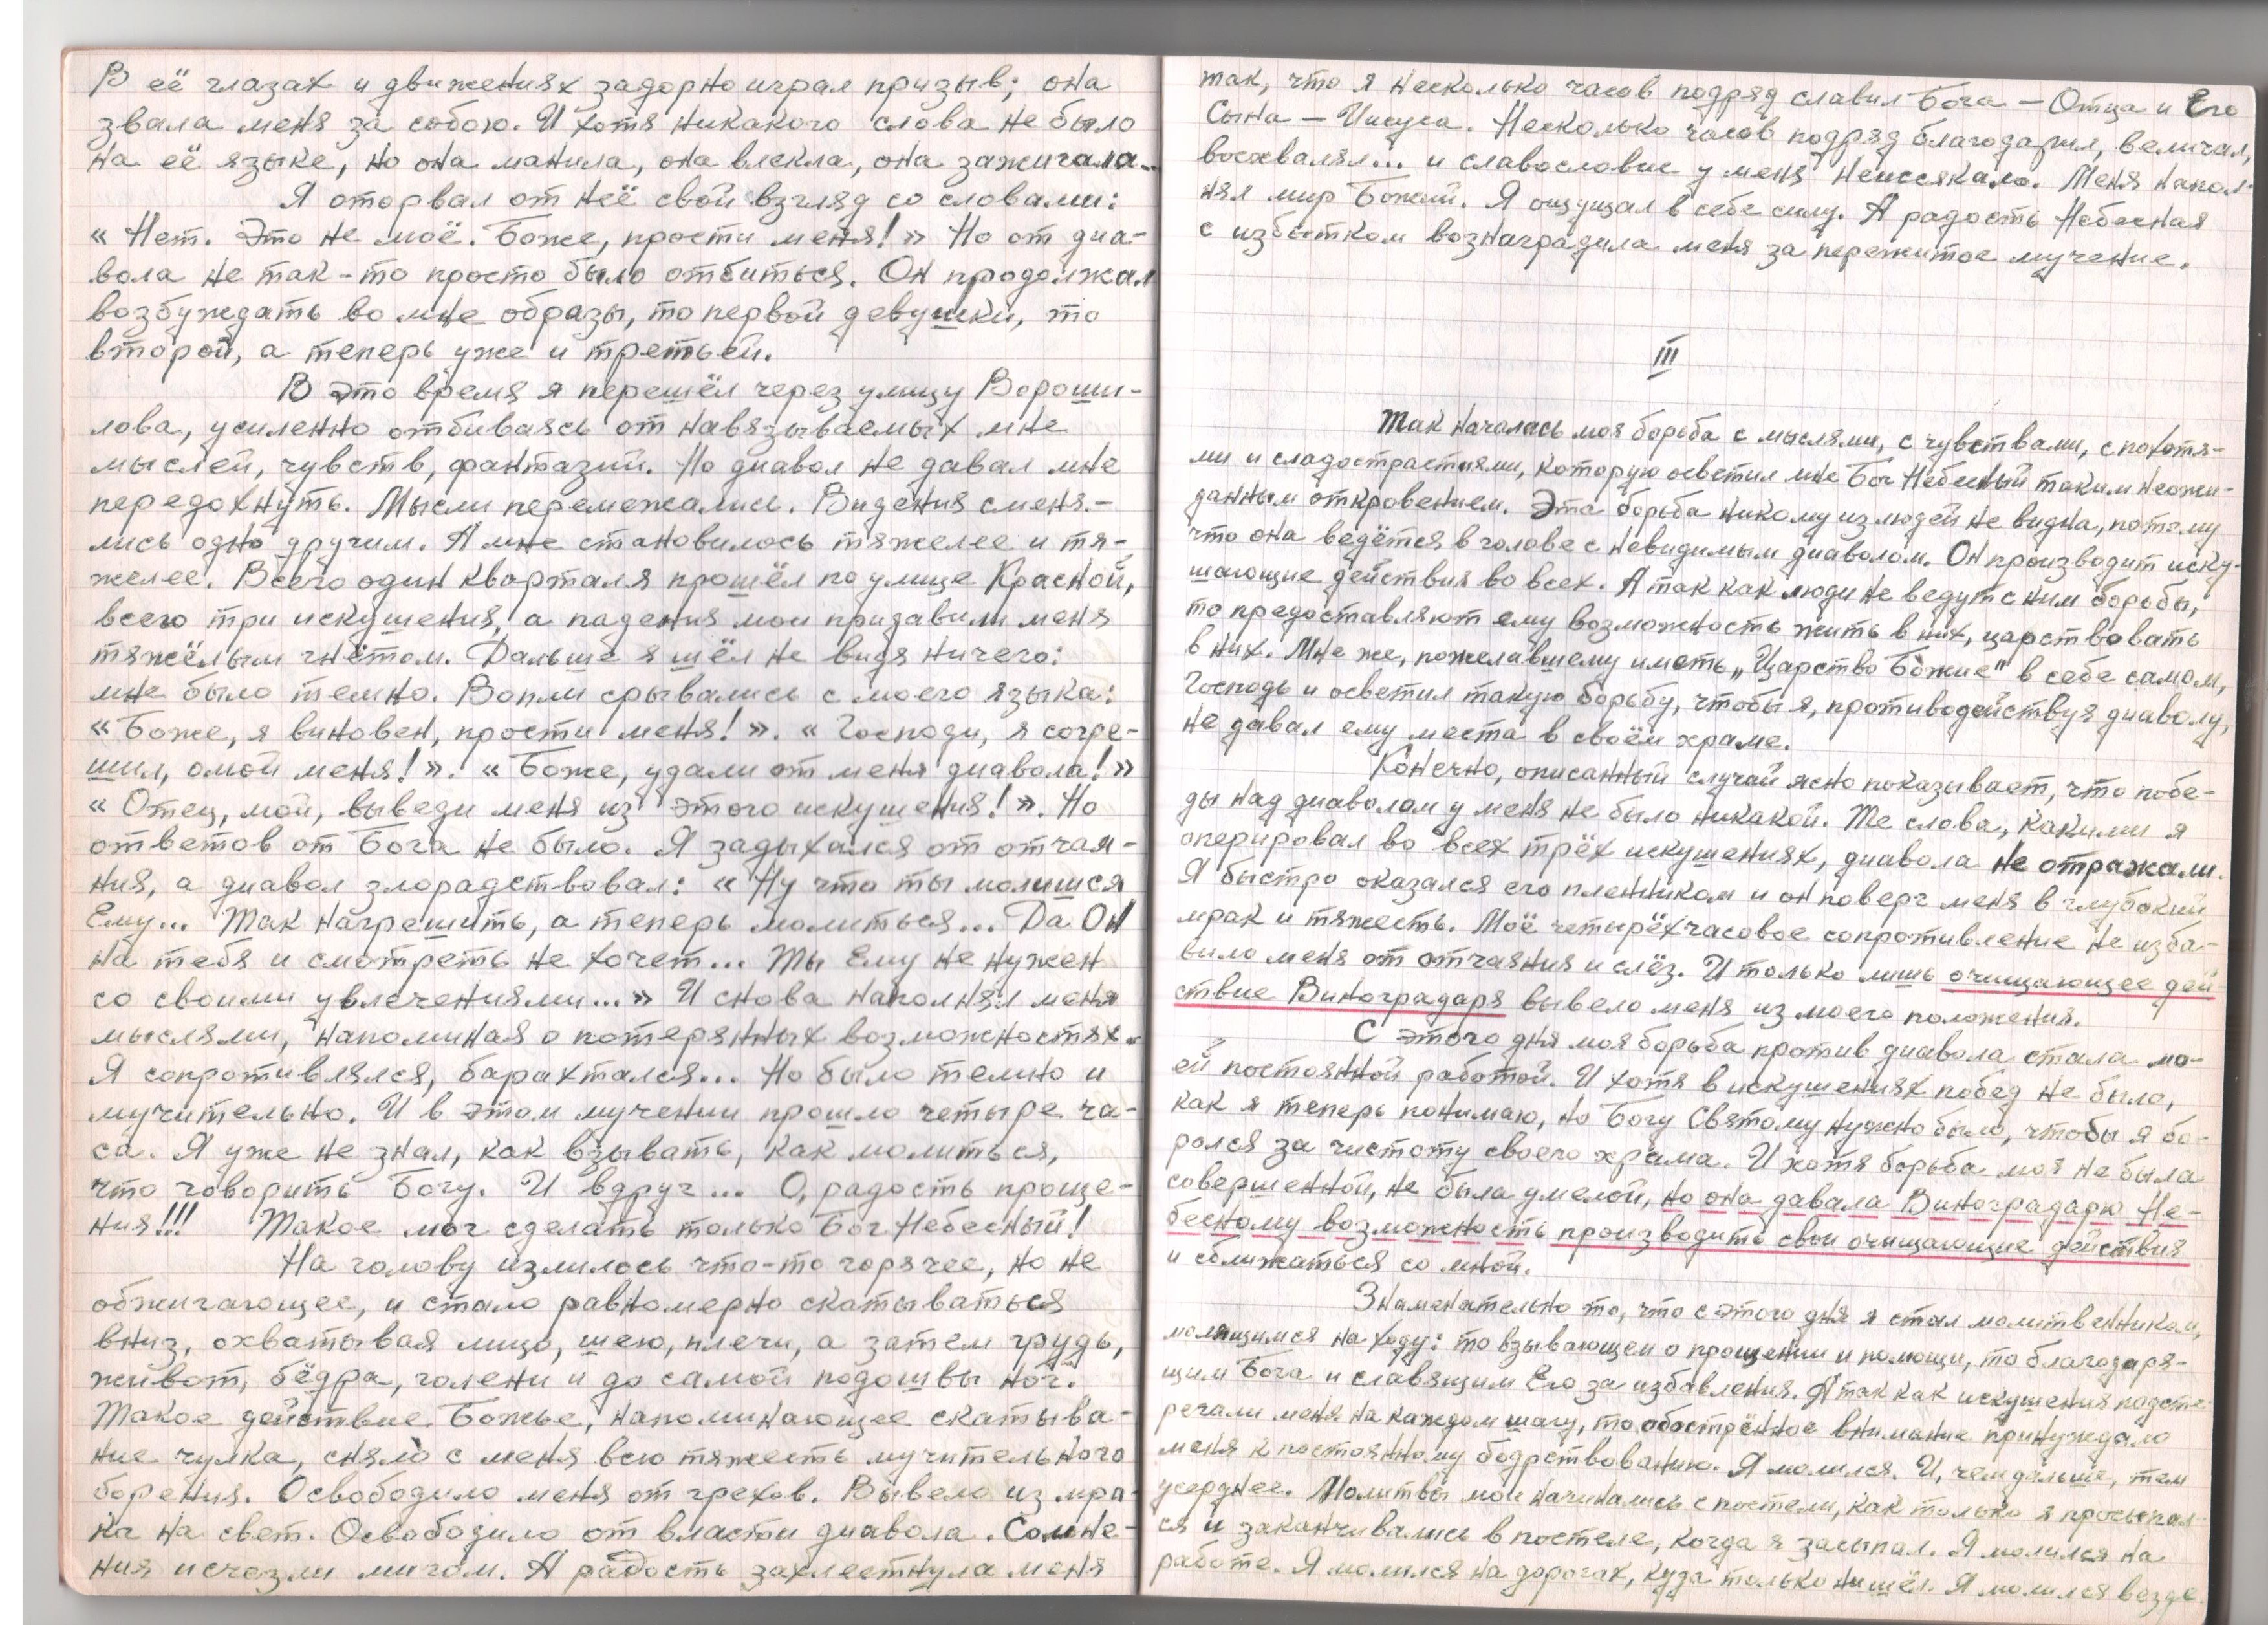 В её глазах и движениях задорно играл призыв; она
звала меня за собою. И хотя никакого слова не было
на её языке, но она манила, она влекла, она зажигала...
Я оторвал от неё свой взгляд со словами:
« Нет. Это не моё. Боже, прости меня! » Но от диа-
вола не так-то просто было отбиться. Он продолжал
возбуждать во мне образы, то первой девушки, то
второй, а теперь уже и третьей.
В это время я перешёл через улицу Вороши-
лова, усиленно отбиваясь от навязываемых мне
мыслей, чувств, фантазий. Но диавол не давал мне
передохнуть. Мысли перемежались. Видения сменя-
лись одно другим. А мне становилось тяжелее и тя-
желее. Всего один квартал я прошёл по улице Красной,
всего три искушения, а падения мои придавили меня
тяжёлым гнётом. Дальше я шёл не видя ничего:
мне было темно. Вопли срывались с моего языка:
« Боже, я виновен, прости меня! ». « Господи, я согре-
шил, омой меня! ». « Боже, удали от меня диавола! »
« Отец, мой, выведи меня из этого искушения! ». Но
ответов от Бога не было. Я задыхался от отчая-
ния, а диавол злорадствовал: « Ну что ты молишся
Ему... Так нагрешить, а теперь молиться... Да Он
на тебя и смотреть не хочет... Ты Ему не нужен
со своими увлечениями... » И снова наполнял меня
мыслями, напоминая о потерянных возможностях.
Я сопротивлялся, барахтался... Но было темно и
мучительно. И в этом мучении прошло четыре ча-
са. Я уже не знал, как взывать, как молиться,
что говорить Богу. И вдруг... О, радость проще-
ния!!! Такое мог сделать только Бог Небесный!
На голову излилось что-то горячее, но не
обжигающее, и стало равномерно скатываться
вниз, охватывая лицо, шею, плечи, а затем грудь,
живот, бёдра, голени и до самой подошвы ног.
Такое действие Божье, напоминающее скатыва-
ние чулка, сняло с меня всю тяжесть мучительного
борения. Освободило меня от грехов. Вывело из мра-
ка на свет. Освободило от власти диавола. Сомне-
ния исчезли мигом. А радость захлестнула меня
так, что я несколько часов подряд славил Бога – Отца и Его
Сына – Иисуса. Несколько часов подряд благодарил, величал,
восхвалял... и славословие у меня неиссякало. Меня напол-
нял мир Божий. Я ощущал в себе силу. А радость Небесная
с избытком вознаградила меня за пережитое мучение.
III
Так началась моя борьба с мыслями, с чувствами, с похотя-
ми и сладострастиями, которую осветил мне Бог Небесный таким неожи-
данным откровением. Эта борьба никому из людей не видна, потому
что она ведётся в голове с невидимым диаволом. Он производит иску-
шающие действия во всех. А так как люди не ведут с ним борьбы,
то предоставляют ему возможность жить в них, царствовать
в них. Мне же, пожелавшему иметь „Царство Божие" в себе самом,
Господь и осветил такую борьбу, чтобы я, противодействуя диаволу,
не давал ему места в своём храме.
Конечно, описанный случай ясно показывает, что побе-
ды над диаволом у меня не было никакой. Те слова, какими я
оперировал во всех трёх искушениях, диавола не отражали.
Я быстро оказался его пленником и он поверг меня в глубокий
мрак и тяжесть. Моё четырёхчасовое сопротивление не изба-
вило меня от отчаяния и слёз. И только лишь очищающее дей-
ствие Виноградаря вывело меня из моего положения.
С этого дня моя борьба против диавола стала мо-
ей постоянной работой. И хотя в искушениях побед не было,
как я теперь понимаю, но Богу Святому нужно было, чтобы я бо-
ролся за чистоту своего храма. И хотя борьба моя не была
совершенной, не была умелой, но она давала Виноградарю Не-
бесному возможность производить свои очищающие действия
и сближаться со мной.
Знаменательно то, что с этого дня я стал молитвенником,
молящимся на ходу: то взывающем о прощении и помощи, то благодаря-
щим Бога и славящим Его за избавления. А так как искушения подсте-
регали меня на каждом шагу, то обострённое внимание принуждало
меня к постоянному бодрствованию. Я молился. И, чем дальше, тем
усерднее. Молитвы мои начинались с постели, как только я просыпал-
ся и заканчивались в постеле, когда я засыпал. Я молился на
работе. Я молился на дорогах, куда только ни шёл. Я молился везде.